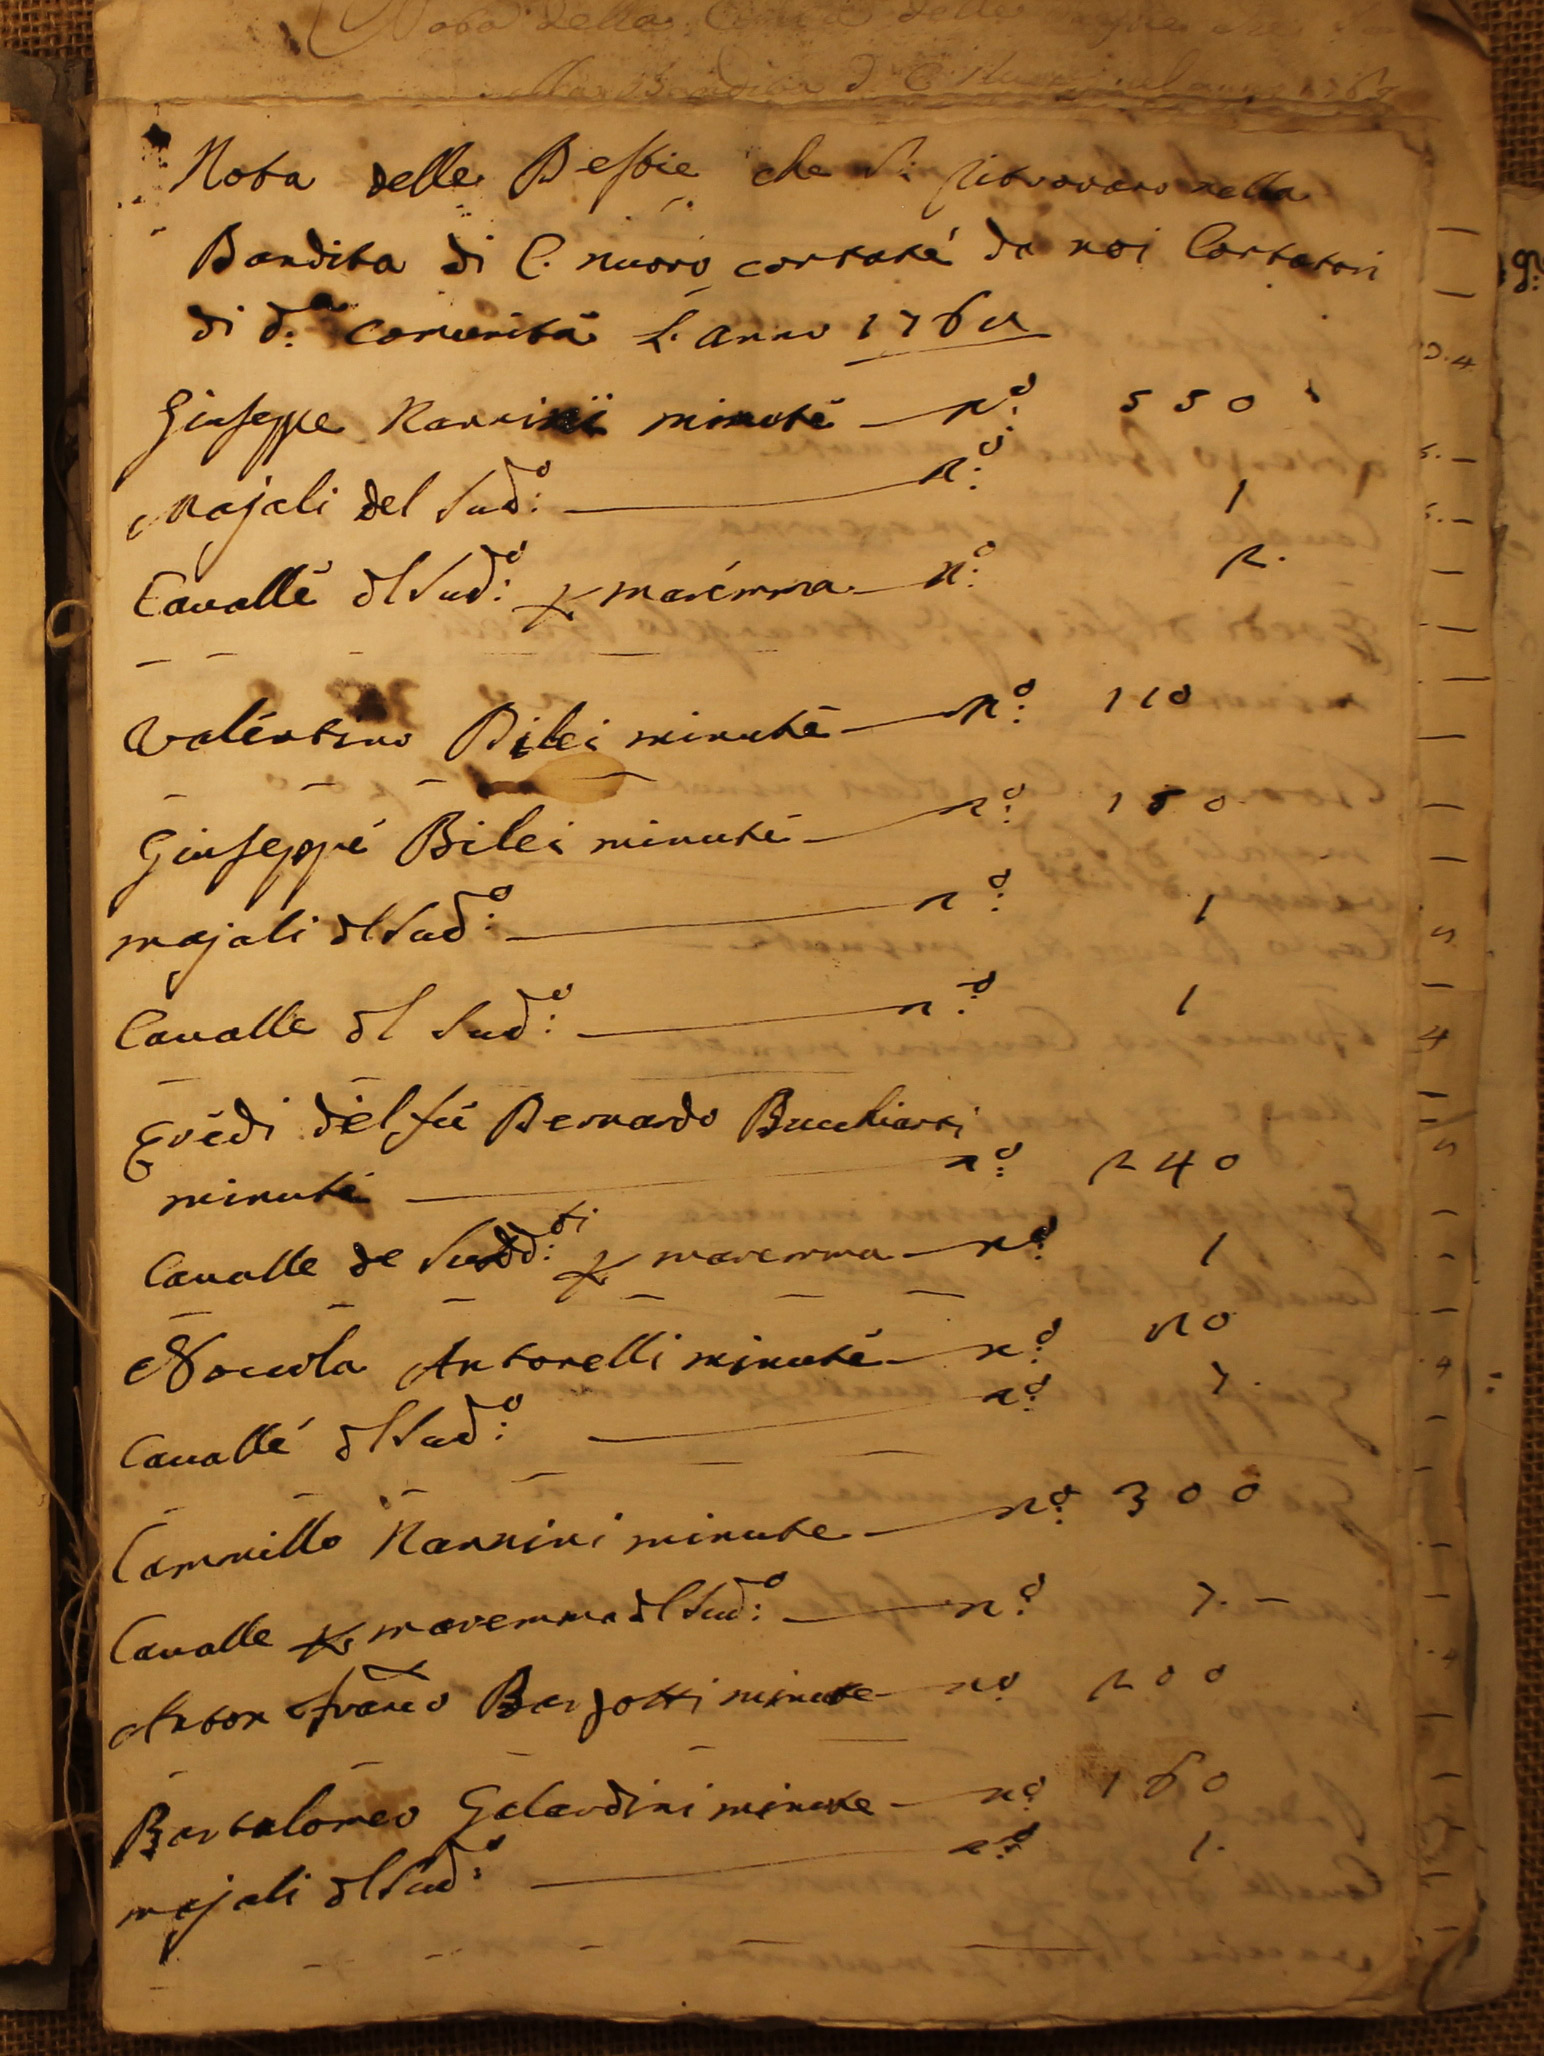 Nota delle
nel anno 176
Nota delle Bestie che si ritrovano nella
Bandita di C. nuovo contate da noi Contatori
di d:ª Comunità L'anno 176
Giuseppe Nannini minute — n:º 550
Majali del Sud:º — n:º 1
Cavalle dl Sud:º p maremma — n:º 2.
Valentino Bilei minute — n:º 110
Giuseppe Bilei minute — n:º 150
majali dl Sud:º — n:º 1
Cavalle dl Sud:º — n:º 1
Eredi del fu Bernardo Bucchianti
minute — n:º 240
Cavalle de Sudd:ti p maremma — n:º 1
Niccola Antonelli minute — n:º 20
Cavalle dl Sud:º — n:º 7.
Cammillo Nannini minute — n:º 300
Cavalle p maremma dl Sud:º — n:º 7. —
Anton Franco Bargotti minute — nº 200
Bartalomeo Gelardini minute — n:º 160
majali dl Sud:º — n:º 1.